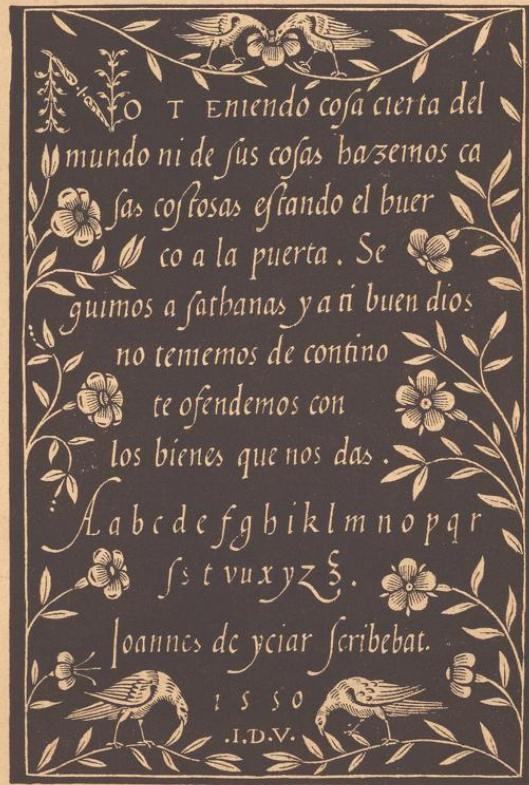 NO T Eniendo coſa cierta del
mundo ni de ſus coſas hazemos ca
ſas coſtosas eſtando el buer
co a la puerta. Se
guimos a ſathanas y a ti buen dios
no tememos de contino
te ofendemos con
los bienes que nos das.
A a b c d e f g h i k l m n o p q r
ſ s t v u x y z ξ.
Ioannes de yciar ſcribebat.
1550
.I.D.V.